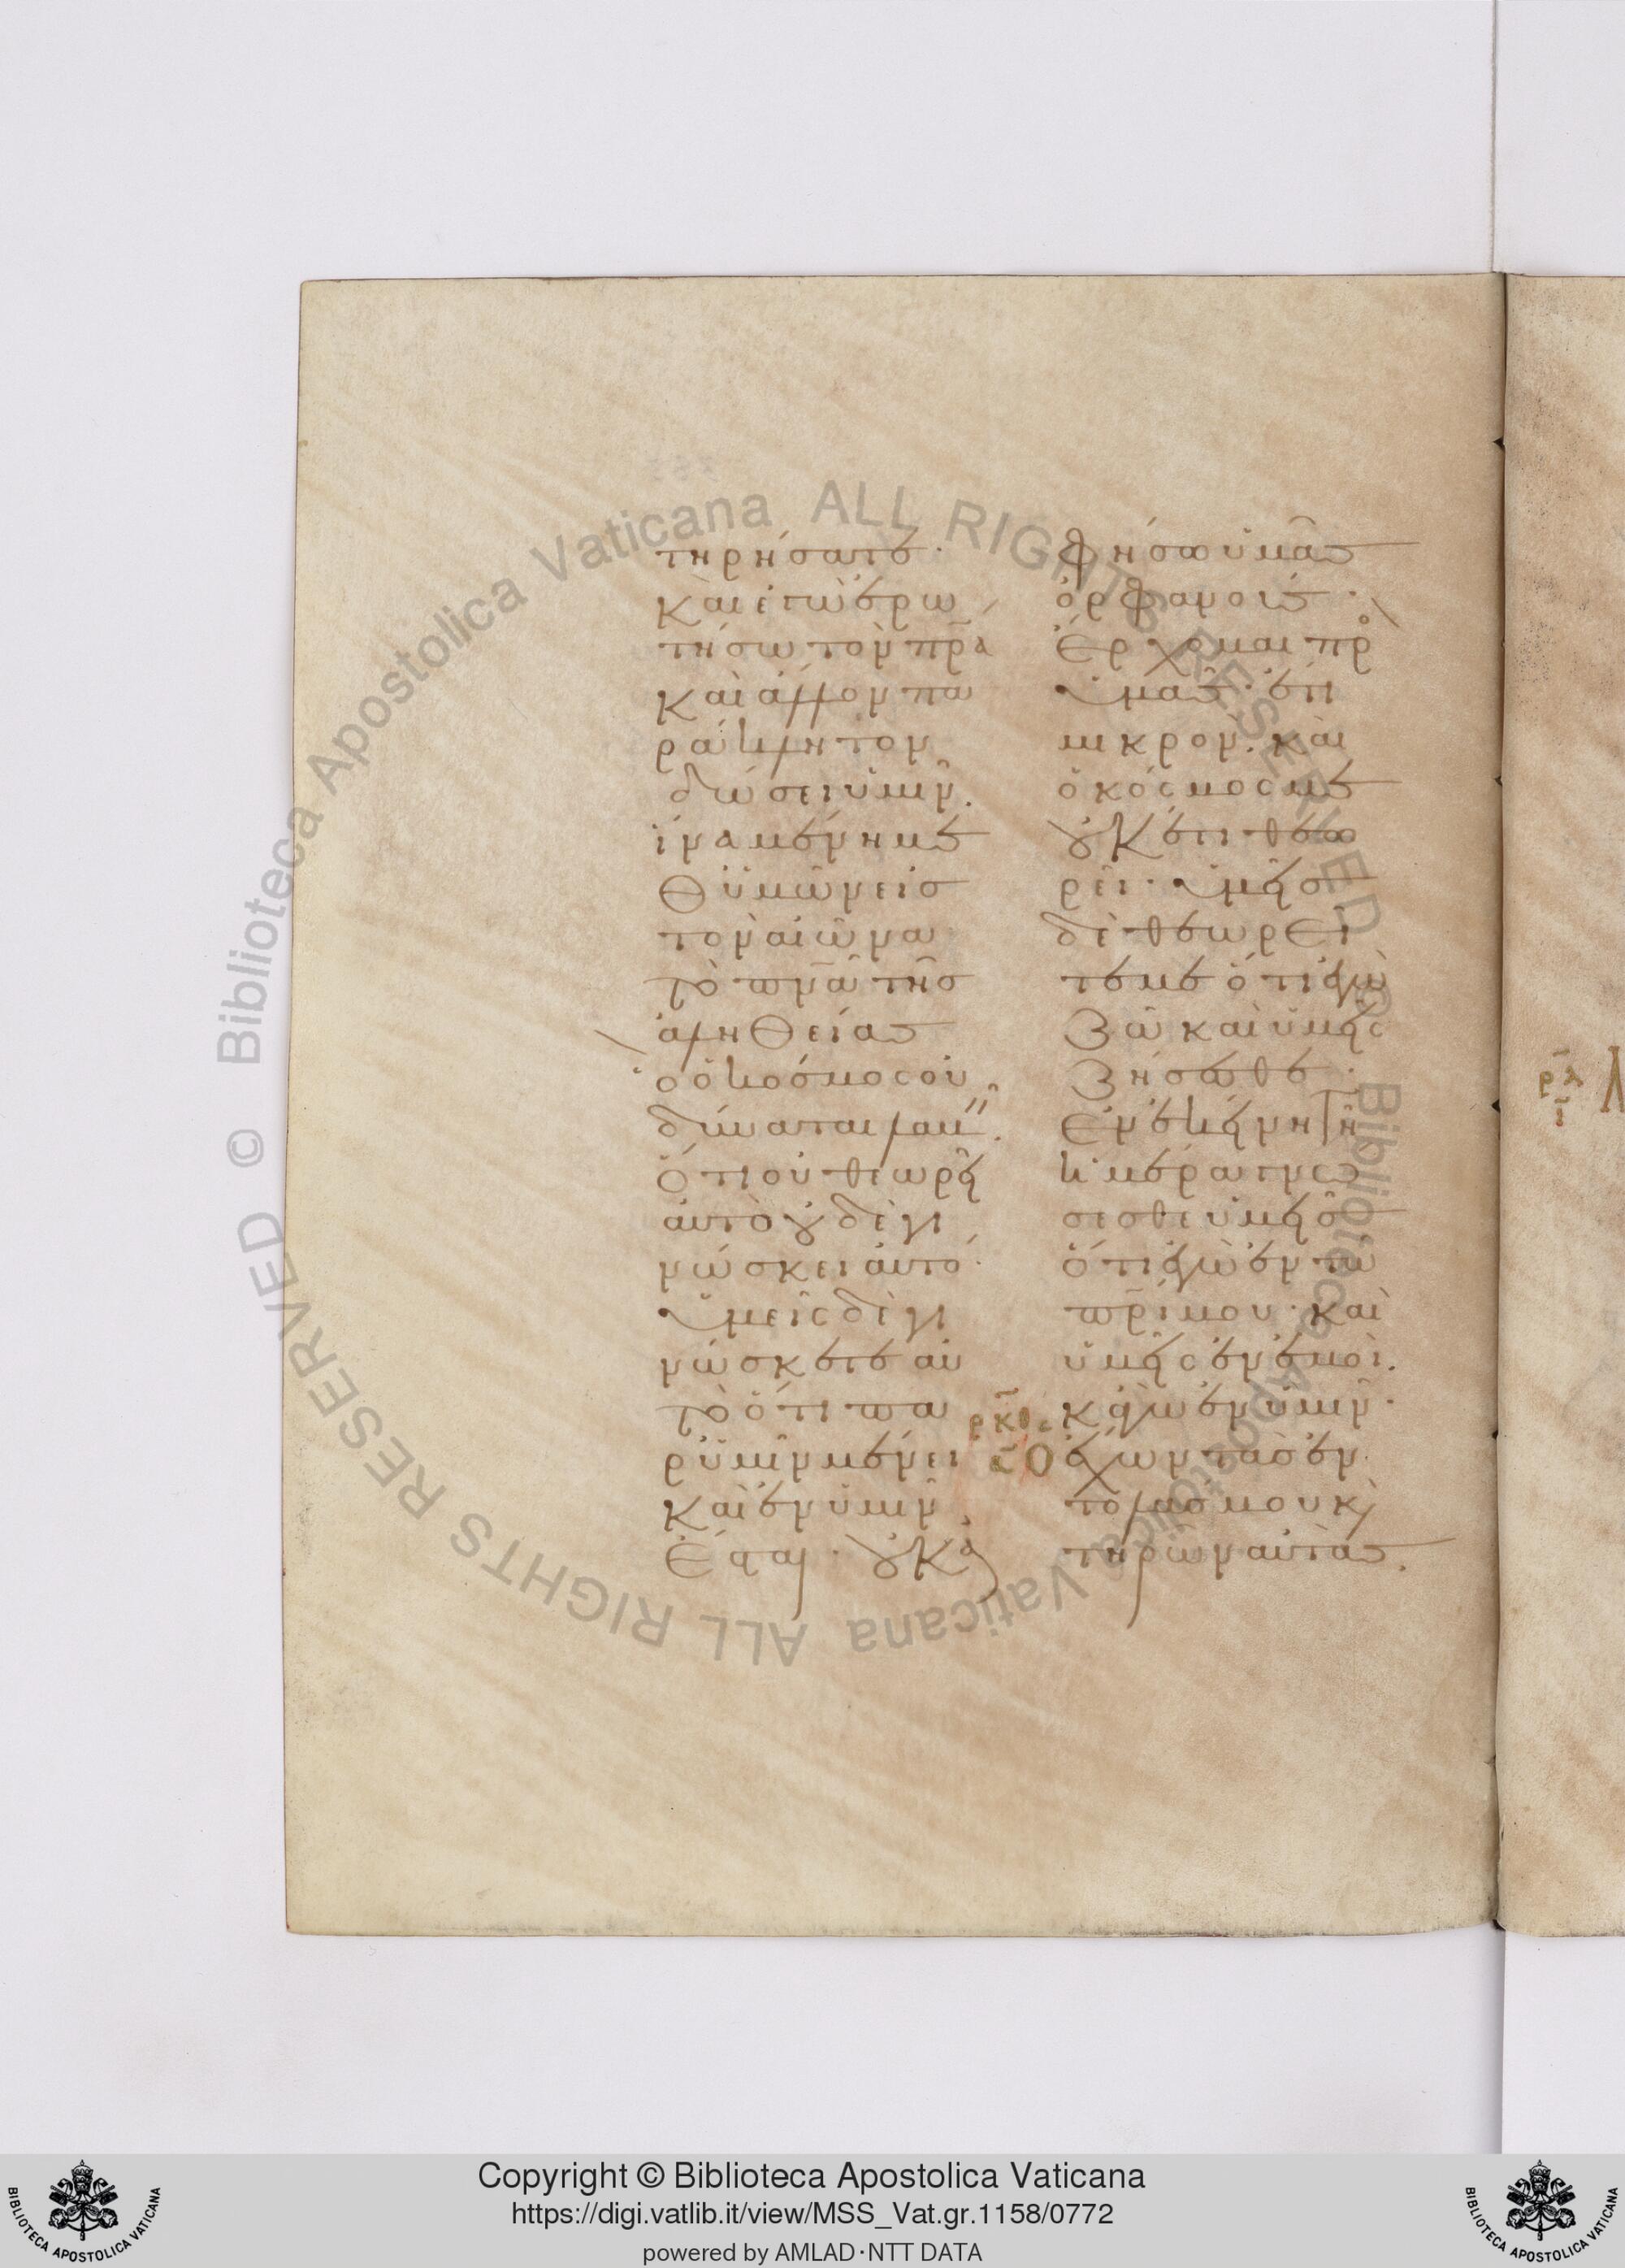 τηρήσατε·
Καὶ ἐγὼ ἐρω
τήσω τὸν πρ̅α
καὶ ἄλλον πα
ράκλητον
δώσει ὑμῖν.
ἵνα μένη με
θ ὑμῶν εἰσ
τὸν αἰῶνα
τὸ πν̅α τῆσ
ἀληθείασ
ὃ ὁ κόσμοσ οὐ
δύναται λαβεῖν.
Ὅτι οὐ θεωρεῖ
αὐτὸ οὐδὲ γι
νώσκει αὐτό·
Ὑμεῖσ δὲ γι
νώσκετε αὐ
τὸ ὅτι πα
ρ ὑμῖν μένει
Καὶ ἐν ὑμῖν
ἔσται· οὐκ ἀ
φήσω ὑμᾶσ
ὀρφανούσ·
Ἔρχομαι πρὸ
ὑμᾶσ· ἔτι
μικρὸν· καὶ
ὁ κόσμοσ με
οὐκ έτι θεω
ρεῖ· ὑμεῖσ
δὲ θεωρεῖ
τέ με ὅτι ἐγὼ
ζῶ καὶ ὑμεῖσ
ζήσεσθε·
Ἐν ἐκείνη τῆ
ἡμέρα γνώ
σεσθε ὑμεῖσ
ὅτι ἐγὼ ἐν τῶ
πρ̅ί μου· καὶ
ὑμεῖσ ἐν ἐμοὶ.
κἀγὼ ἐν ὑμῖν·
ρκθ
Ὁ ἔχων τὰσ ἐν
τολάσ μου κ
τηρῶν αὐτάσ.
Copyright © Biblioteca Apostolica Vaticana
https://digi.vatlib.it/view/MSS_Vat.gr.1158/0772
powered by AMLAD·NTT DATA
BIBLIOTECA APOSTOLICA VATICANA
BIBLIOTECA APOSTOLICA VATICANA
Biblioteca Apostolica Vaticana ALL RIGHTS RESERVED ©
Biblioteca Apostolica Vaticana ALL RIGHTS RESERVED ©